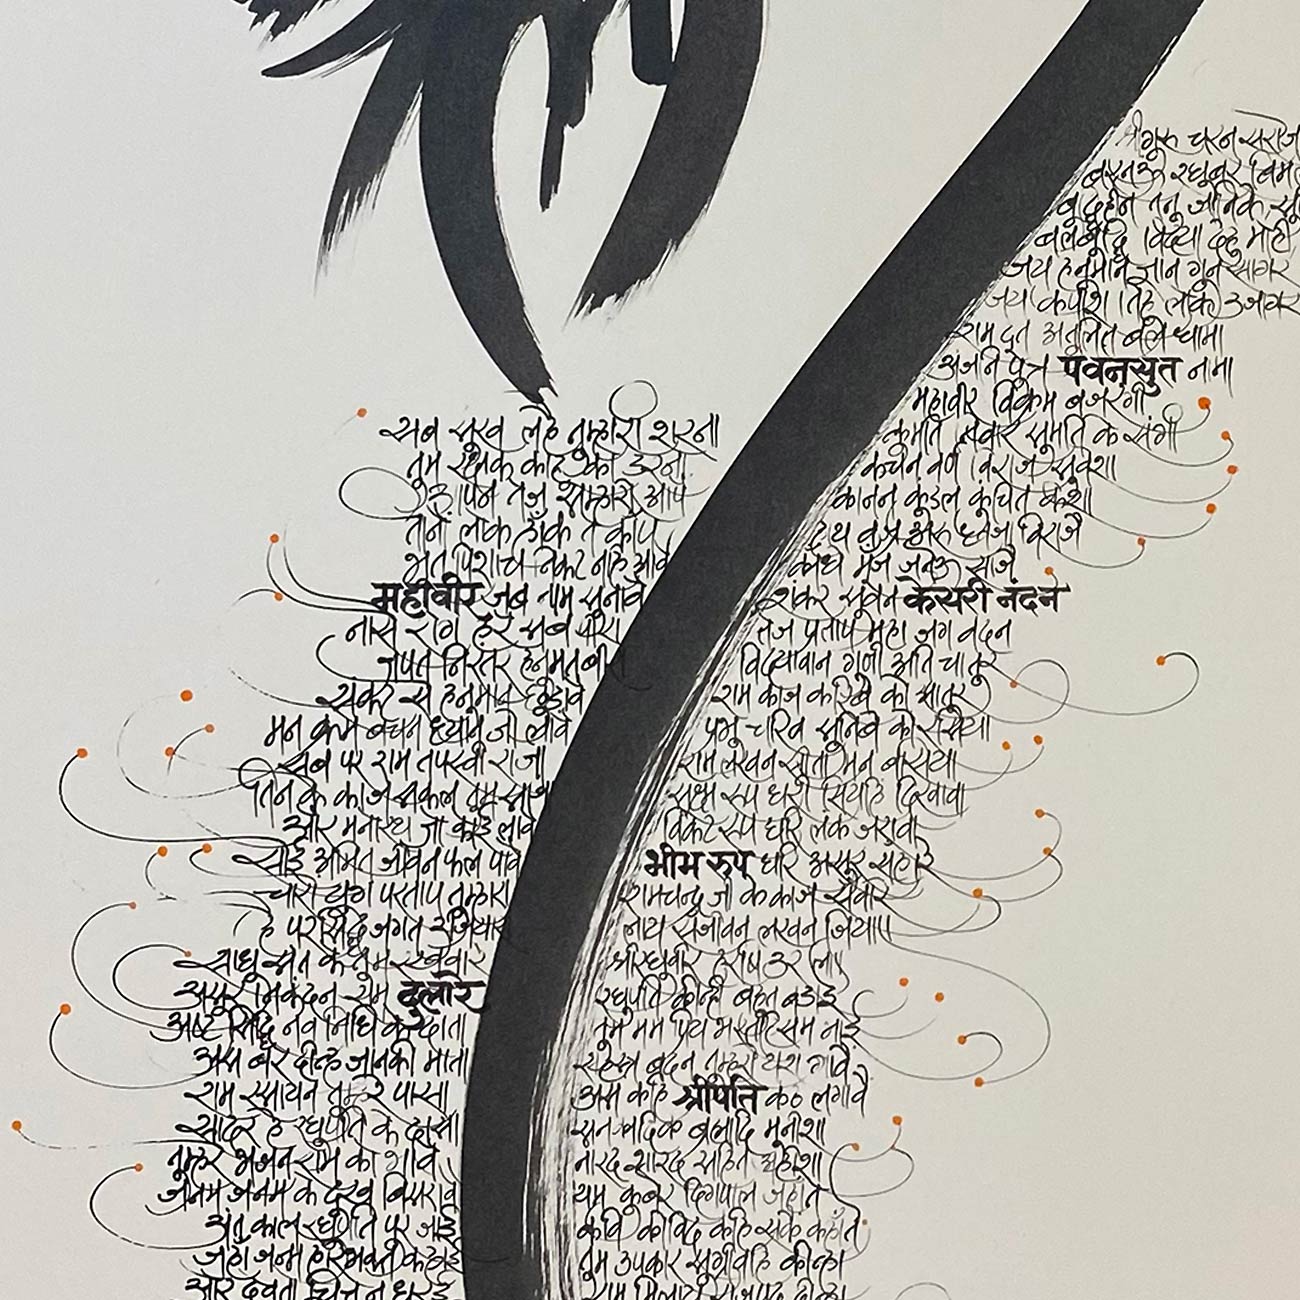 श्रीगुरु चरन सरोज
बरनऊ रघुबर बिम
बुद्धहीन तनु जानिके सु
बलबुद्धि विद्या देहु मोही
जय हनुमान ज्ञान गुन सागर
जय कपीश तिहु लोक उजागर
राम दूत अतुलित बल धामा
अंजनि पुत्र पवनसुत नामा
महावीर विक्रम बजरंगी
कुमति निवार सुमति के संगी
कंचन वर्ण विराज सुवेशा
कानन कुंडल कुंचित केशा
हाथ वज्र अरु ध्वजा विराजै
कांधे मूंज जनेऊ साजै
शंकर सुवन केसरी नंदन
तेज प्रताप महा जग वंदन
विद्यावान गुणी अति चातुर
राम काज करिबे को आतुर
प्रभु चरित्र सुनिबे को रसिया
राम लखन सीता मन बसिया
सूक्ष्म रूप धारी सियहि दिखावा
विकट रूप धरि लंक जरावा
भीम रुप धरि असुर संहारे
रामचन्द्र जी के काज संवारे
लाय संजीवन लखन जियाए
श्रीरघुवीर हरषि उर लाए
रघुपति कीन्ही बहुत बड़ाई
तुम मम प्रिय भरतहि सम भाई
सहस्त्र बदन तुम्हरो यश गावै
अस कहि श्रीपति कंठ लगावै
सनकादिक ब्रह्मादि मुनीशा
नारद सारद सहित अहीशा
यम कुबेर दिगपाल जहां ते
कवि कोविद कहि सके कहाँ ते
तुम उपकार सुग्रीवहि कीन्हा
राम मिलाय राजपद दीन्हा
सब सुख लहै तुम्हारी शरना
तुम रक्षक काहू को डरना
आपन तेज सम्हारो आपै
तीनो लोक हाँक ते काँपै
भूत पिशाच निकट नहि आवै
महावीर जब नाम सुनावै
नासै रोग हरै सब पीरा
जपत निरंतर हनुमत बीरा
संकट से हनुमान छुडावै
मन क्रम बच्चन ध्यान जो लावै
सब पर राम तपस्वी राजा
तिन के काज सकल तुम साजा
और मनोरथ जो कोई लावै
सोई अमित जीवन फल पावै
चारो युग परताप तुम्हारा
है परसिद्ध जगत उजियारा
साधु संत के तुम रखवारे
असुर निकंदन राम दुलारे
अष्ट सिद्धि नव निधि के दाता
अस बर दीन्ह जानकी माता
राम रसायन तुम्हरे पासा
सादर हे रघुपति के दासा
तुम्हरे भजन राम को भावै
जनम जनम के दुख बिसरावै
अंत काल रघुपति पुर जाई
जहां जन्म हरिभक्त कहाई
और देवता चित्त न धरई